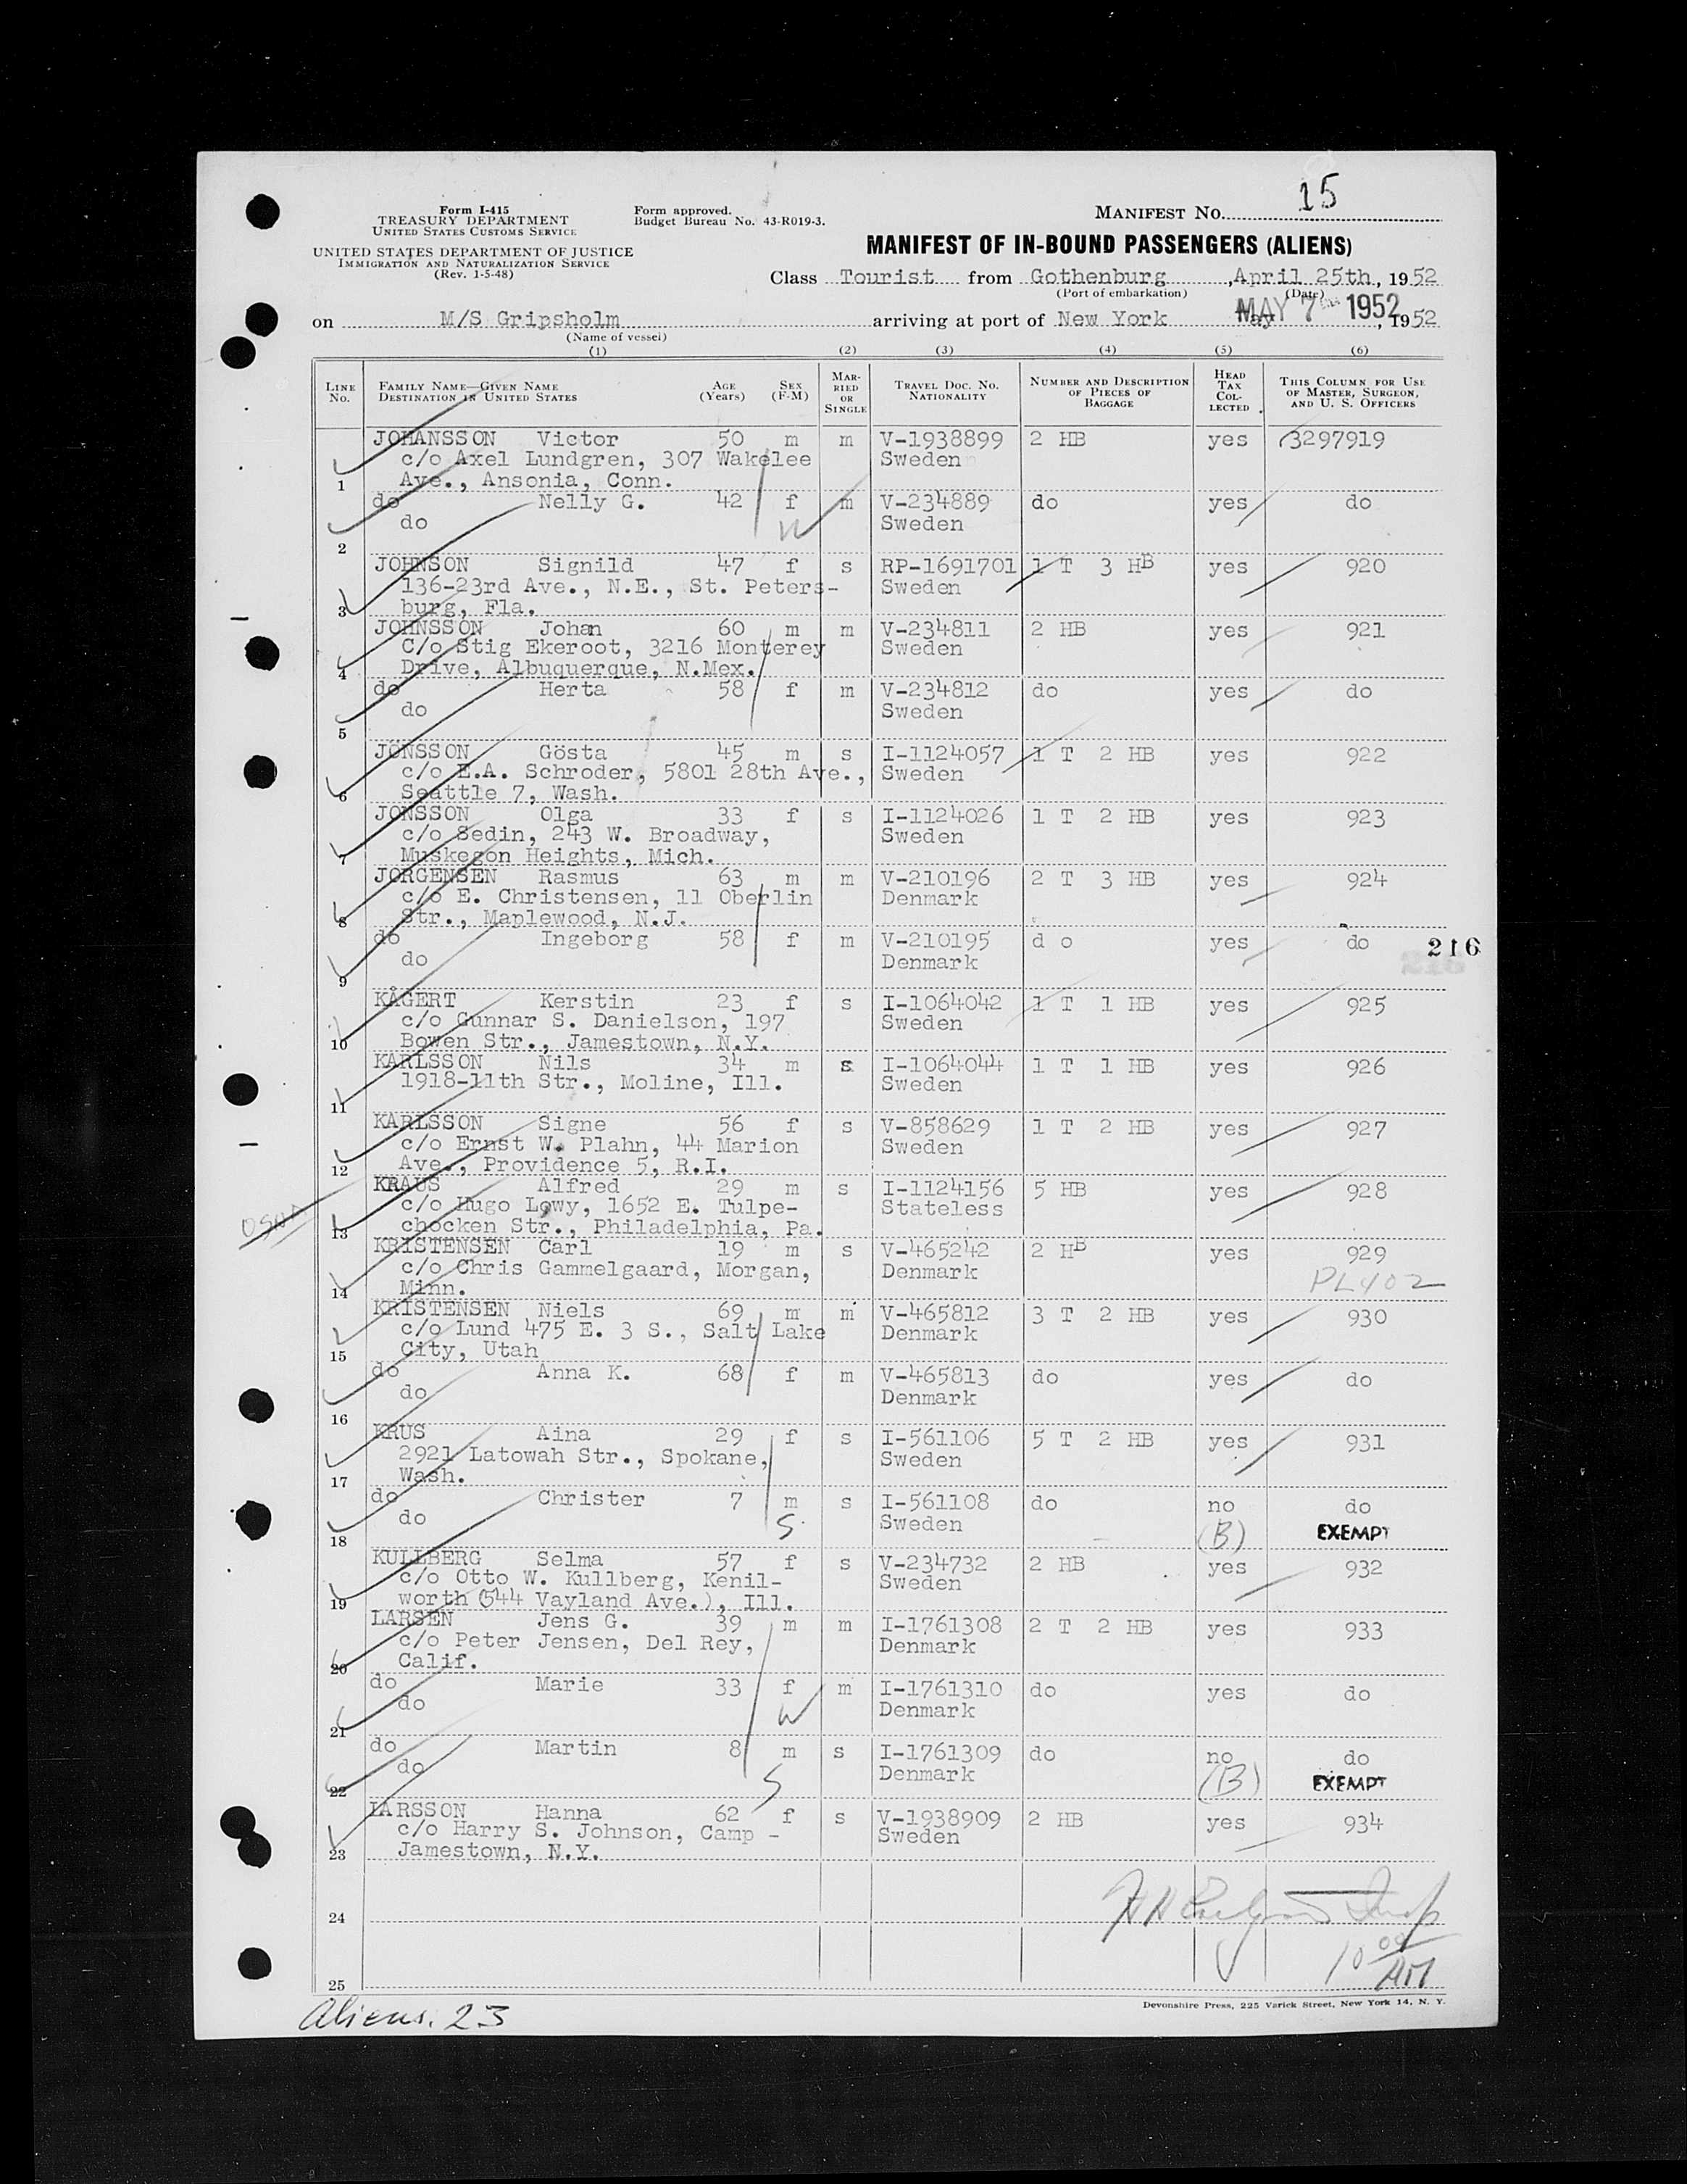 15
Form I-415
TREASURY DEPARTMENT
UNITED STATES CUSTOMS SERVICE
UNITED STATES DEPARTMENT OF JUSTICE
IMMIGRATION AND NATURALIZATION SERVICE
(Rev. 1-5-48)
Form approved.
Budget Bureau No. 43-R019-3.
MANIFEST NO.
MANIFEST OF IN-BOUND PASSENGERS (ALIENS)
Class Tourist from Gothenburg, April 25th, 1952
(Port of embarkation) (Date)
on M/S Gripsholm arriving at port of New York MAY 7 1952, 1952
(Name of vessel)
(1) (2) (3) (4) (5) (6)
LINE NO. FAMILY NAME—GIVEN NAME DESTINATION IN UNITED STATES AGE (Years) SEX (F-M) MARRIED OR SINGLE TRAVEL DOC. NO. NATIONALITY NUMBER AND DESCRIPTION OF PIECES OF BAGGAGE HEAD TAX COLLECTED THIS COLUMN FOR USE OF MASTER, SURGEON, AND U. S. OFFICERS
JOHANSSON Victor 50 m m V-1938899 2 HB yes 3297919
c/o Axel Lundgren, 307 Wakelee Sweden
1 Ave., Ansonia, Conn.
do Nelly G. 42 f m V-234889 do yes do
do W Sweden
2
JOHNSON Signild 47 f s RP-1691701 1 T 3 HB yes 920
136-23rd Ave., N.E., St. Peters- Sweden
3 burg, Fla.
JOHNSSON Johan 60 m m V-234811 2 HB yes 921
C/o Stig Ekeroot, 3216 Monterey Sweden
4 Drive, Albuquerque, N.Mex.
do Herta 58 f m V-234812 do yes do
do Sweden
5
JÖNSSON Gösta 45 m s I-1124057 1 T 2 HB yes 922
c/o E.A. Schroder, 5801 28th Ave., Sweden
6 Seattle 7, Wash.
JONSSON Olga 33 f s I-1124026 1 T 2 HB yes 923
c/o Sedin, 243 W. Broadway, Sweden
7 Muskegon Heights, Mich.
JORGENSEN Rasmus 63 m m V-210196 2 T 3 HB yes 924
c/o E. Christensen, 11 Oberlin Denmark
8 Str., Maplewood, N.J.
do Ingeborg 58 f m V-210195 d o yes do 216
do Denmark
9
KÅGERT Kerstin 23 f s I-1064042 1 T 1 HB yes 925
c/o Gunnar S. Danielson, 197 Sweden
10 Bowen Str., Jamestown, N.Y.
KARLSSON Nils 34 m s I-1064044 1 T 1 HB yes 926
1918-11th Str., Moline, Ill. Sweden
11
KARLSSON Signe 56 f s V-858629 1 T 2 HB yes 927
c/o Ernst W. Plahn, 44 Marion Sweden
12 Ave., Providence 5, R.I.
KRAUS Alfred 29 m s I-1124156 5 HB yes 928
c/o Hugo Lowy, 1652 E. Tulpe- Stateless
13 chocken Str., Philadelphia, Pa.
KRISTENSEN Carl 19 m s V-465242 2 HB yes 929
c/o Chris Gammelgaard, Morgan, Denmark PL402
14 Minn.
KRISTENSEN Niels 69 m m V-465812 3 T 2 HB yes 930
c/o Lund 475 E. 3 S., Salt Lake Denmark
15 City, Utah
do Anna K. 68 f m V-465813 do yes do
do Denmark
16
KRUS Aina 29 f s I-561106 5 T 2 HB yes 931
2921 Latowah Str., Spokane, Sweden
17 Wash.
do Christer 7 m s I-561108 do no do
do S Sweden (B) EXEMPT
18
KULLBERG Selma 57 f s V-234732 2 HB yes 932
c/o Otto W. Kullberg, Kenil- Sweden
19 worth (544 Vayland Ave.), Ill.
LARSEN Jens G. 39 m m I-1761308 2 T 2 HB yes 933
c/o Peter Jensen, Del Rey, Denmark
20 Calif.
do Marie 33 f m I-1761310 do yes do
do W Denmark
21
do Martin 8 m s I-1761309 do no do
do S Denmark (B) EXEMPT
22
LARSSON Hanna 62 f s V-1938909 2 HB yes 934
c/o Harry S. Johnson, Camp - Sweden
23 Jamestown, N.Y.
24
10 00 AM
25
Devonshire Press, 225 Varick Street, New York 14, N. Y.
Aliens. 23